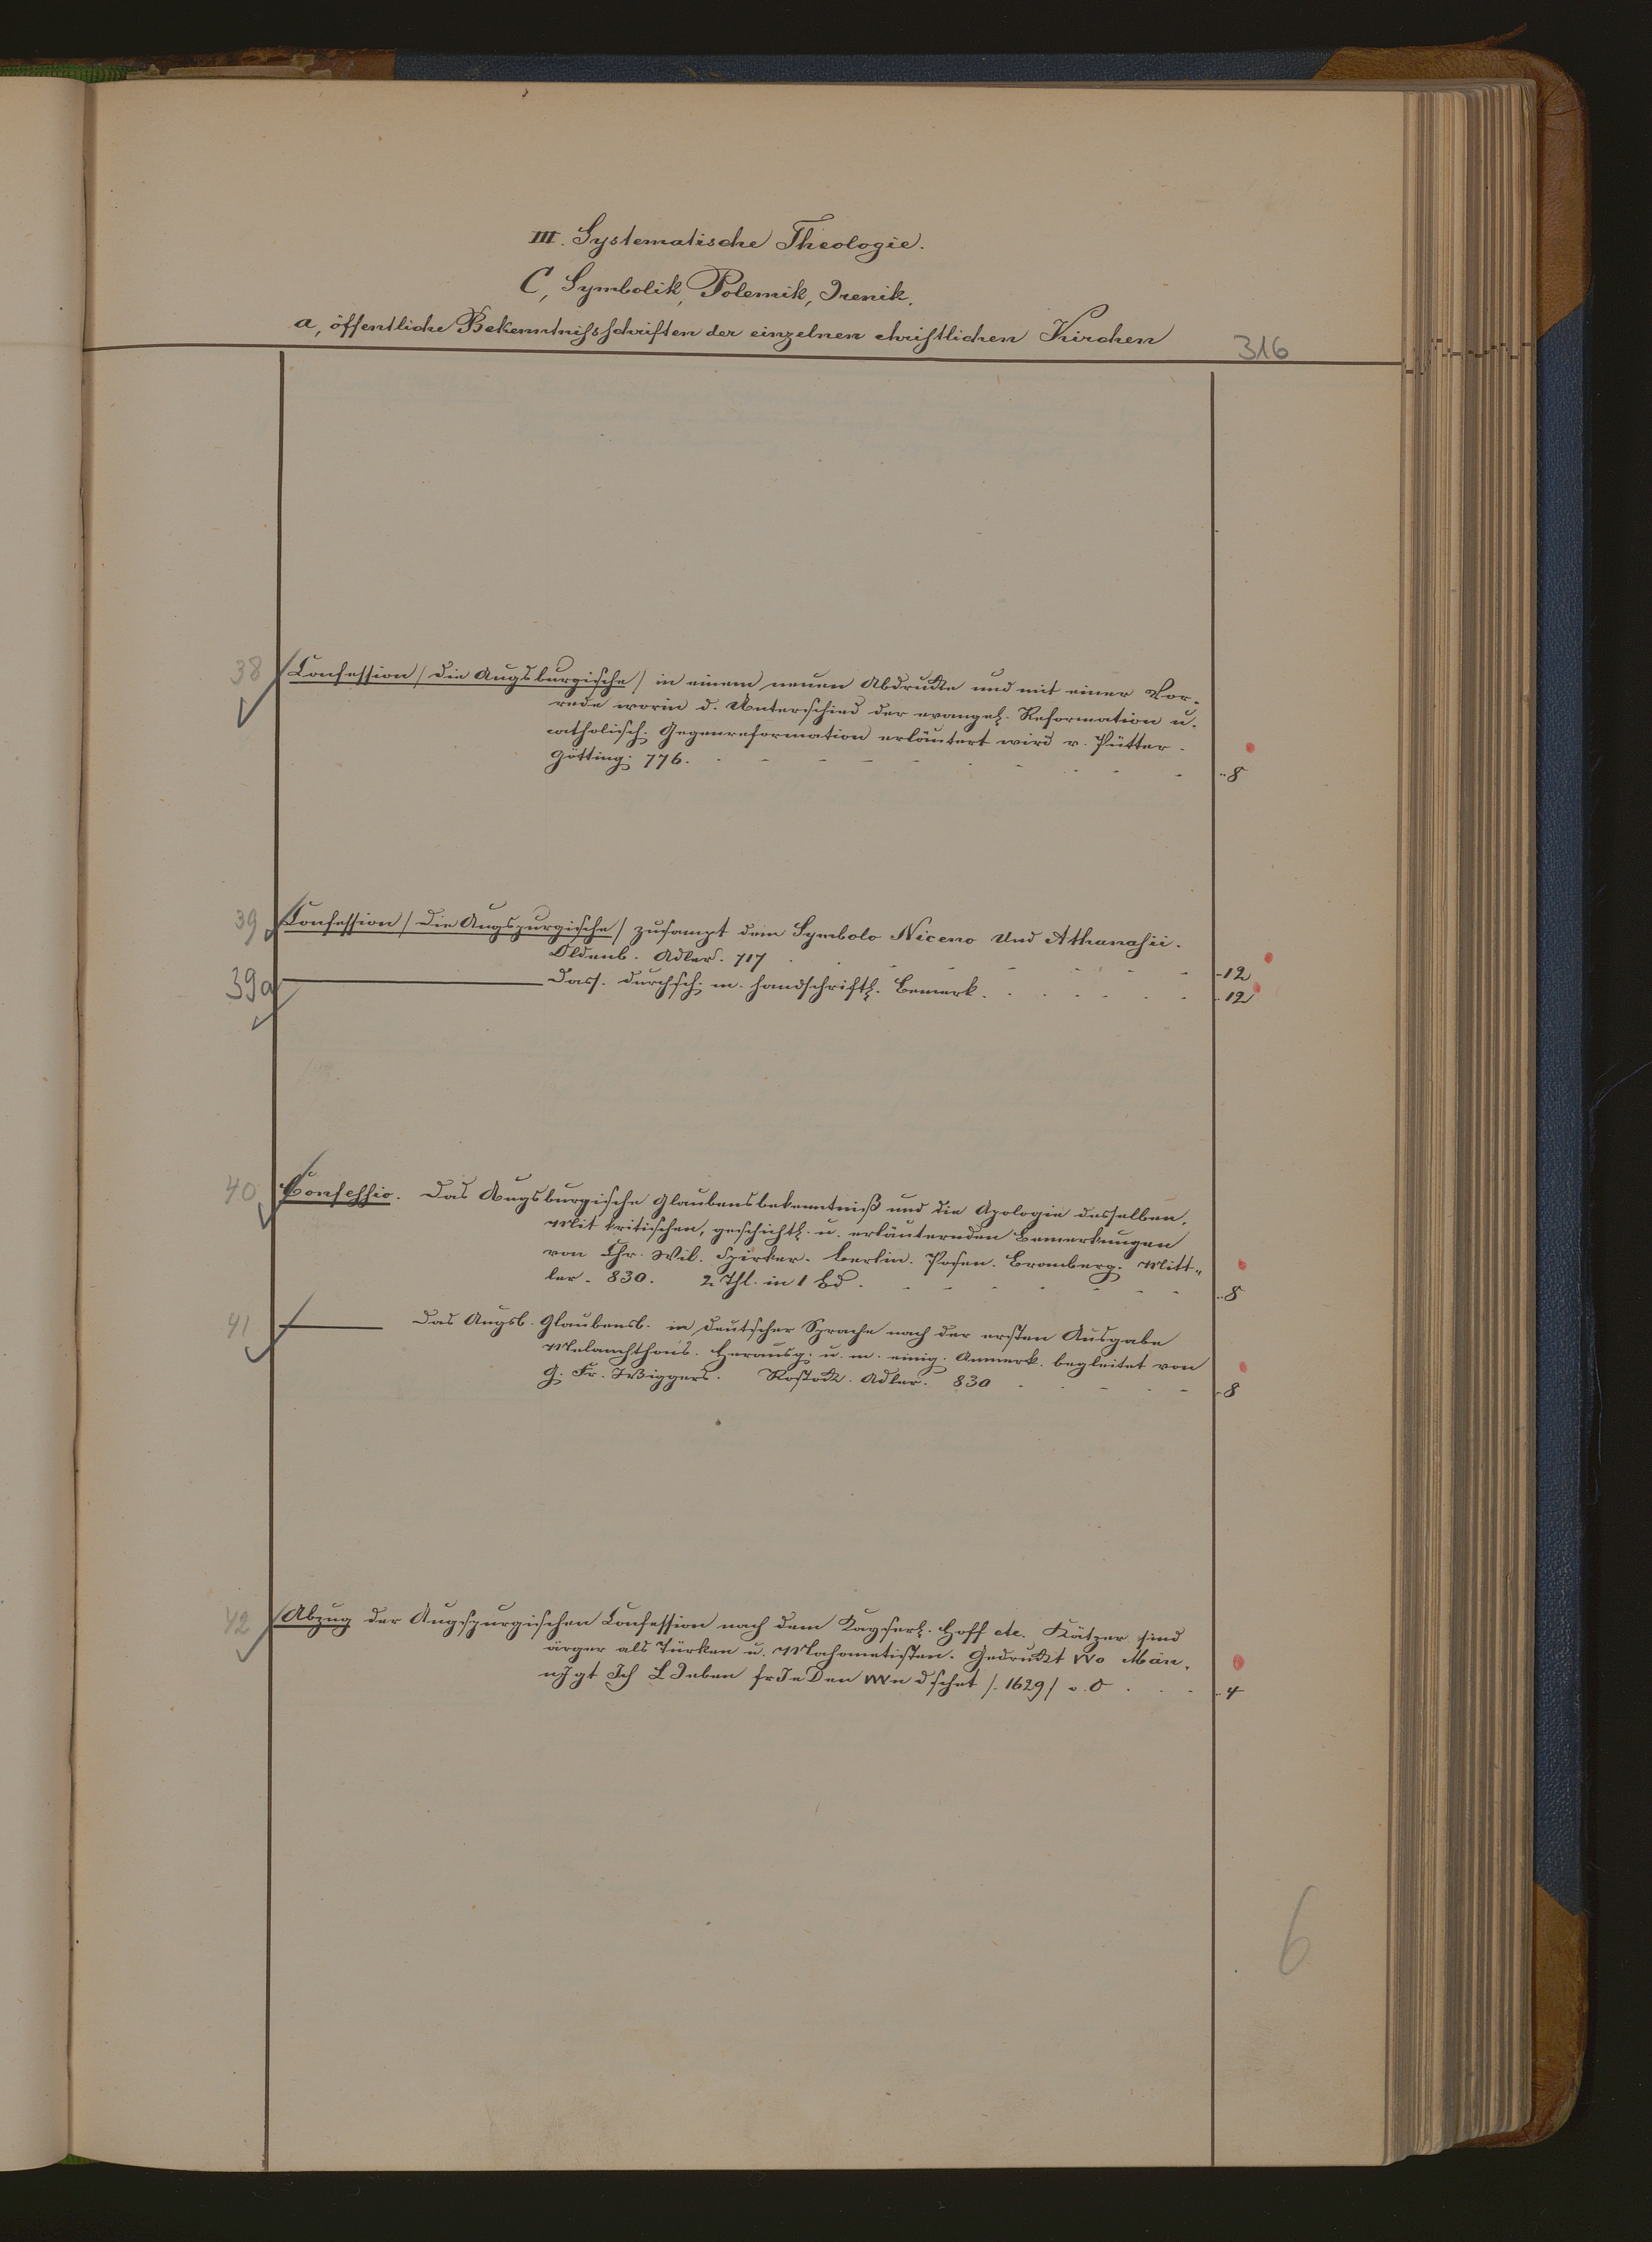 III. Systematische Theologie.
C, Symbolik, Polemik, Irenik.
a, öffentliche Bekenntnißschriften der einzelnen christlichen Kirchen
316
38 Confession / die Augsburgische / in einem neuen Abdrucke und mit einer Vor-
rede worin d. Unterschied der evangel. Reformation u.
catholisch. Gegenreformation erläutert wird v. Pütter.
Götting. 776. 8
39 Confession / die Augspurgische / zusampt dem Symbolo Niceno und Athanasii.
Oldenb. Adler. 717 12
39a Dass. durchsch. m. handschriftl. Bemerk. 12
40 Confessio. Das Augsburgische Glaubensbekenntniß und die Apologie desselben.
Mit kritischen, geschichtl. u. erläuternden Bemerkungen
von Chr. Wil. Spieker. Berlin. Posen. Bromberg. Mitt-
ler. 830. 2 Thl. in 1 Bd. 8
41 Das Augsb. Glaubensb. in deutscher Sprache nach der ersten Ausgabe
Melanchthons. Herausg. u. m. einig. Anmerk. begleitet von
G. Fr. Wiggers. Rostock. Adler. 830 8
42 Abzug der Augspurgischen Confession nach dem Kayserl. Hoff etc. Kätzer sind
ärger als Türken u. Mahometisten. Gedruckt Wo Män-
nIgt Ich LIeben frIeDen WVndschet /. 1629/ o. O 4
6